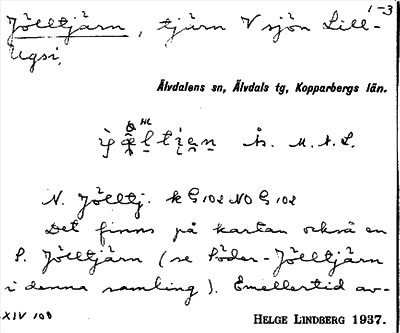 1-3
Jölltjärn, tjärn V sjön Lill-
Ugsi.
Älvdalens sn, Älvdals tg, Kopparbergs län.
HL
N. Jölltj. k G 102 NO G 102
Det finns på kartan också en
S. Jölltjärn (se Söder-Jölltjärn
i denna samling). Emellertid av-
XIV 100
HELGE LINDBERG 1937.